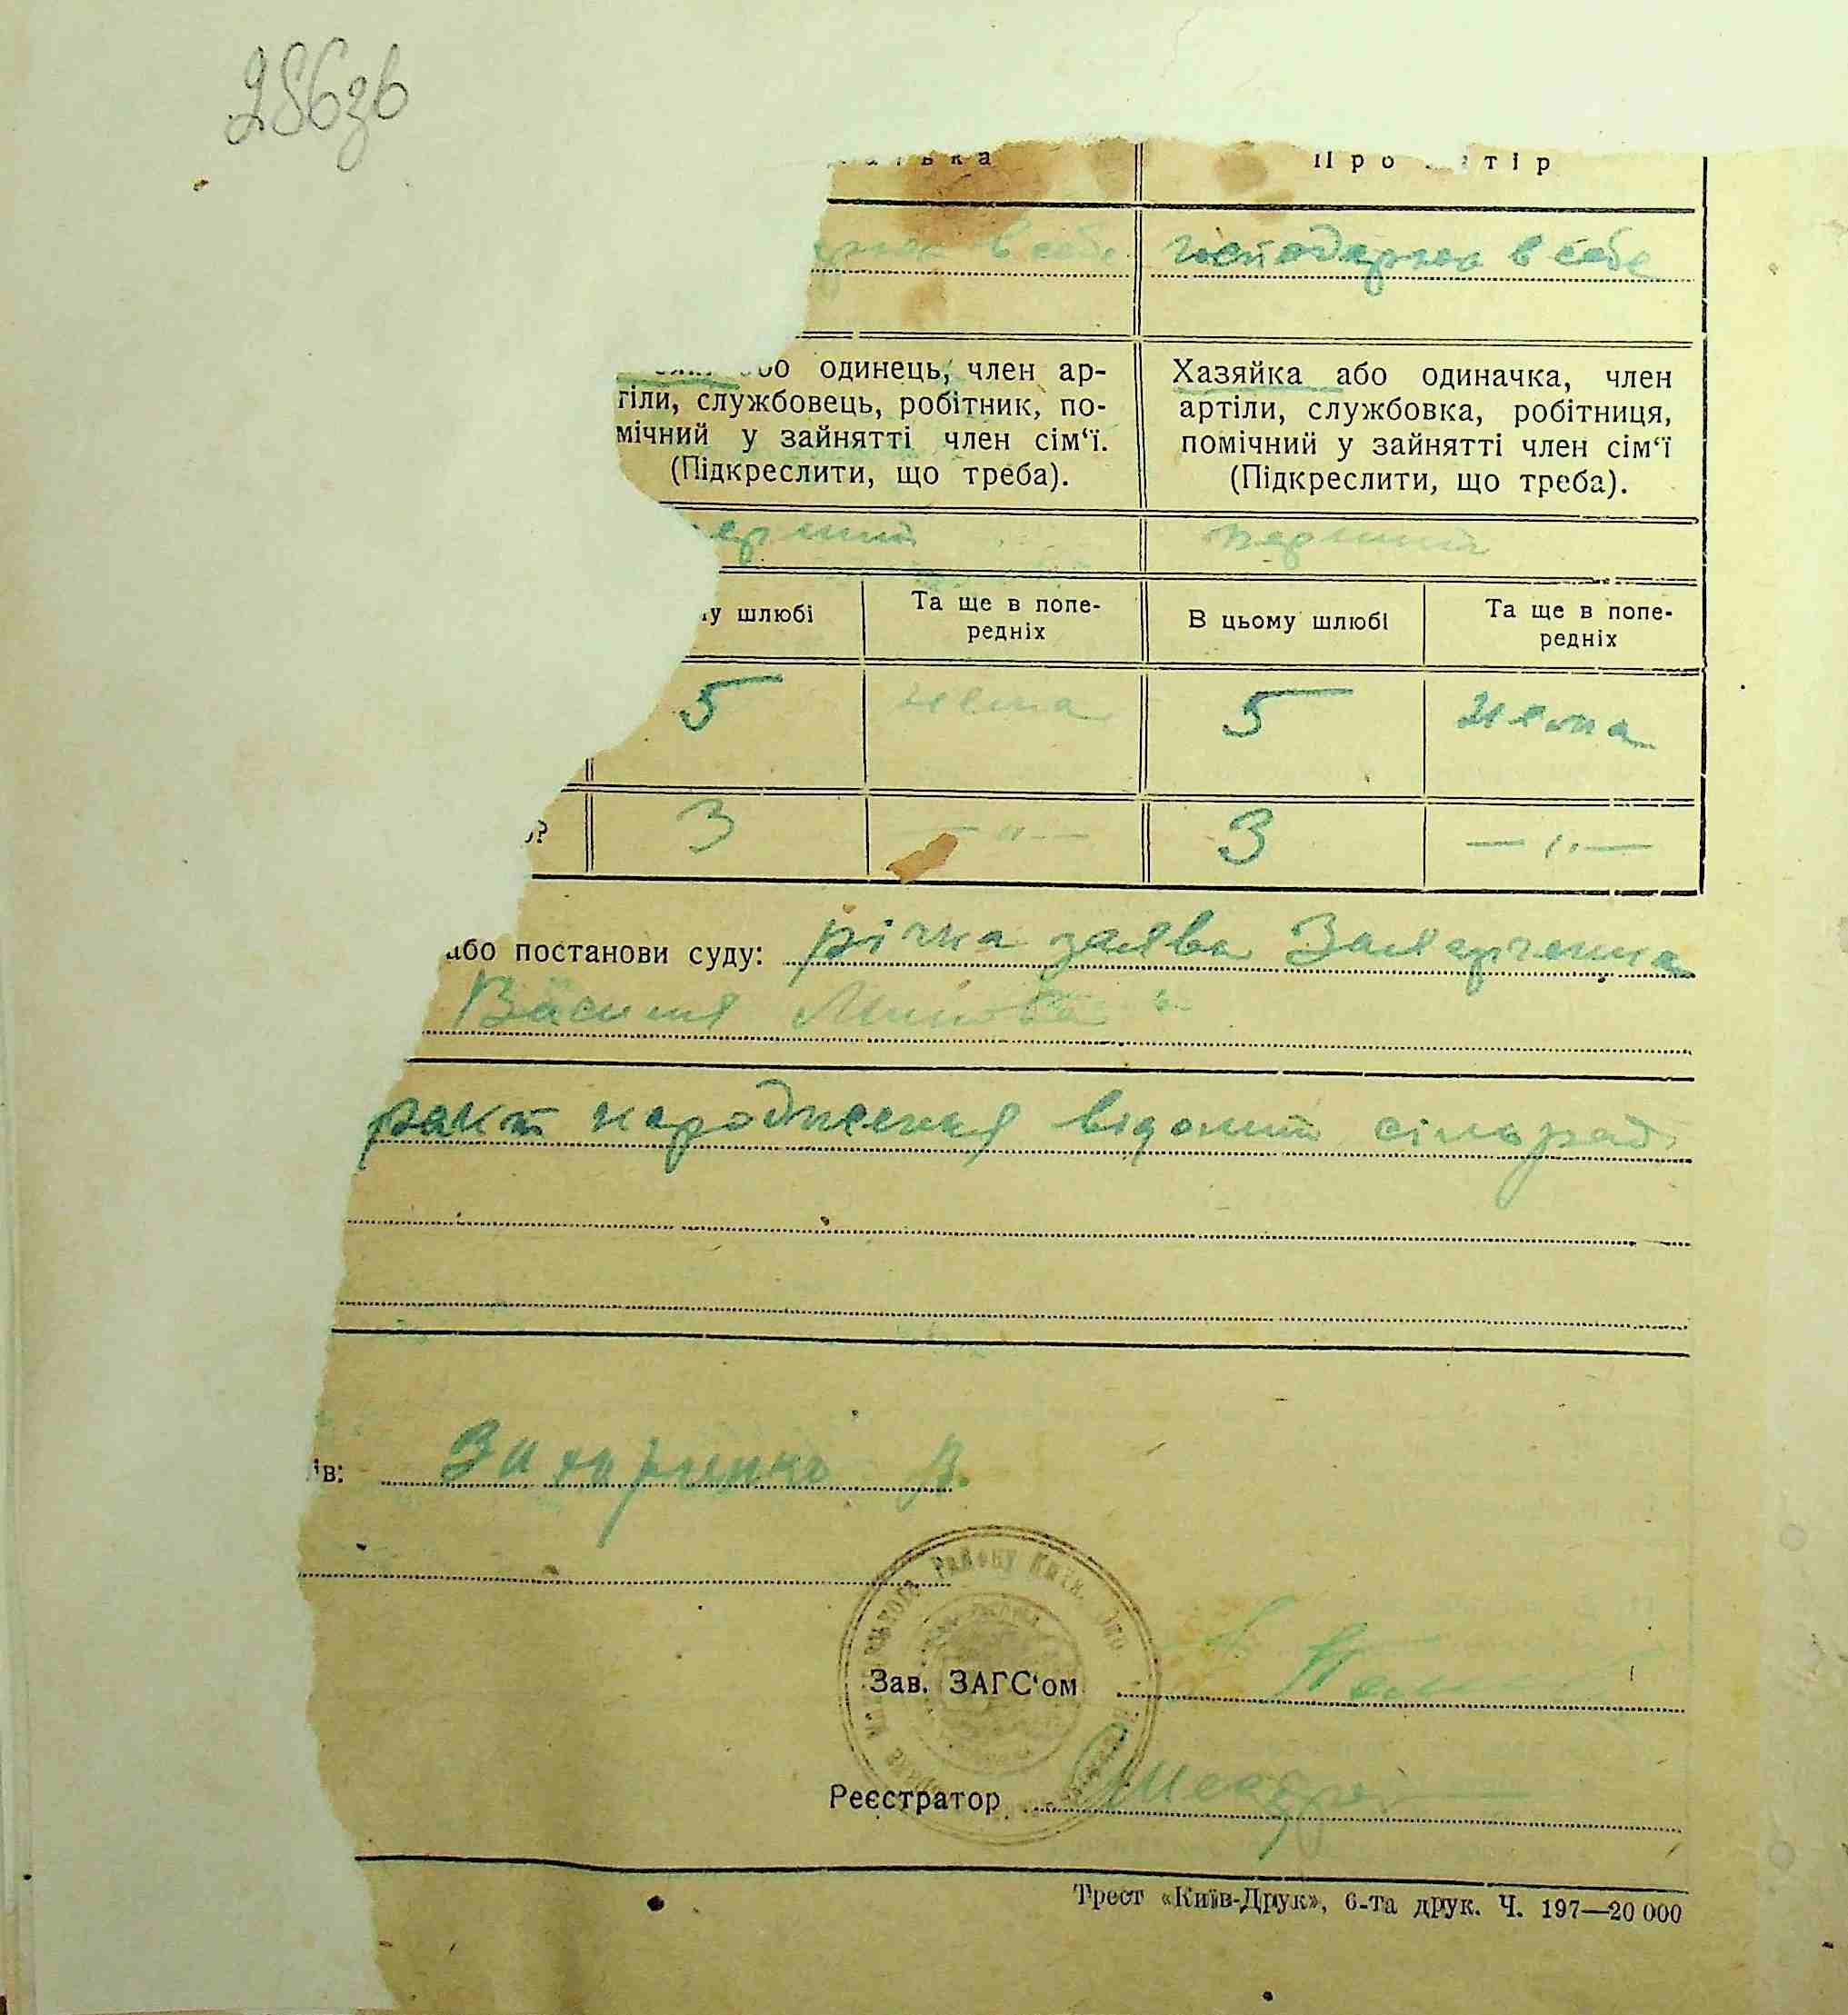 286зв
Про тір
в себе господарює в себе
одинець, член ар-
тіли, службовець, робітник, по-
мічний у зайнятті член сім‘ї.
(Підкреслити, що треба).
Хазяйка або одиначка, член
артіли, службовка, робітниця,
помічний у зайнятті член сім‘ї
(Підкреслити, що треба).
перший
у шлюбі
Та ще в попе-
редніх
В цьому шлюбі
Та ще в попе-
редніх
5 нема 5 нема
3 — „ — 3 — „ —
або постанови суду: річна заява Захарченка
Василя
факт народження відомий сільраді
ів: Захарченко В.
Району Київ.
Зав. ЗАГС‘ом
Реєстратор
Трест «Київ-Друк», 6-та друк. Ч. 197—20 000